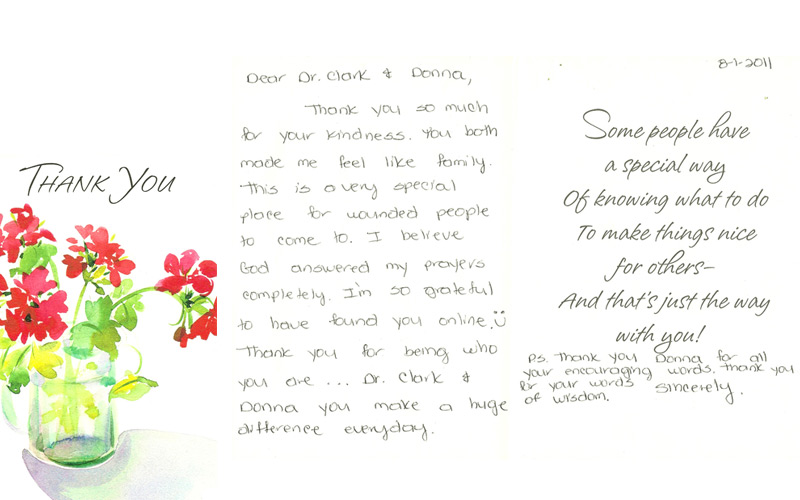 THANK YOU
Dear Dr. Clark & Donna,
Thank you so much
for your kindness. You both
made me feel like family.
This is a very special
place for wounded people
to come to. I believe
God answered my prayers
completely. I'm so grateful
to have found you online.
Thank you for being who
you are ... Dr. Clark &
Donna you make a huge
difference everyday.
8-1-2011
Some people have
a special way
Of knowing what to do
To make things nice
for others–
And that's just the way
with you!
P.S. Thank you Donna for all
your encouraging words. Thank you
for your words sincerely.
of wisdom.